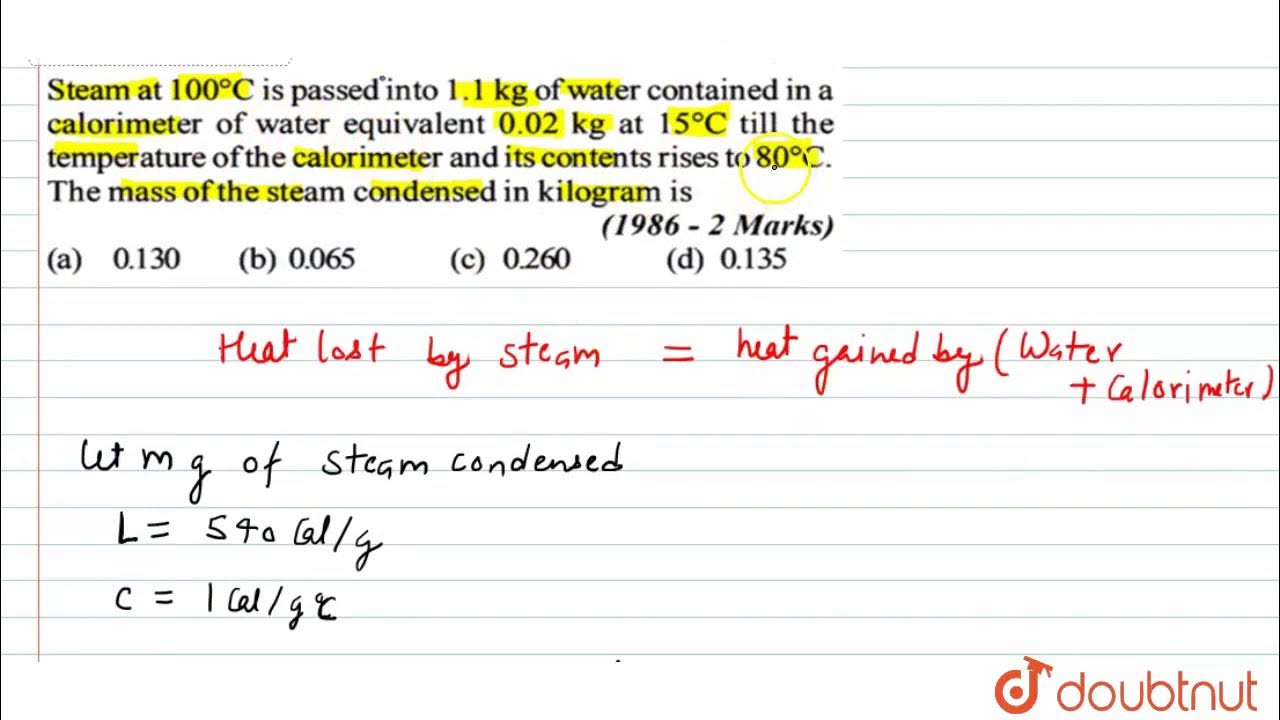 Steam at 100°C is passed into 1.1 kg of water contained in a
calorimeter of water equivalent 0.02 kg at 15°C till the
temperature of the calorimeter and its contents rises to 80°C.
The mass of the steam condensed in kilogram is
(1986 - 2 Marks)
(a) 0.130 (b) 0.065 (c) 0.260 (d) 0.135
Heat lost by steam = heat gained by (Water
+ Calorimeter)
Let m g of steam condensed
L = 540 Cal/g
C = 1 Cal/g °C
doubtnut